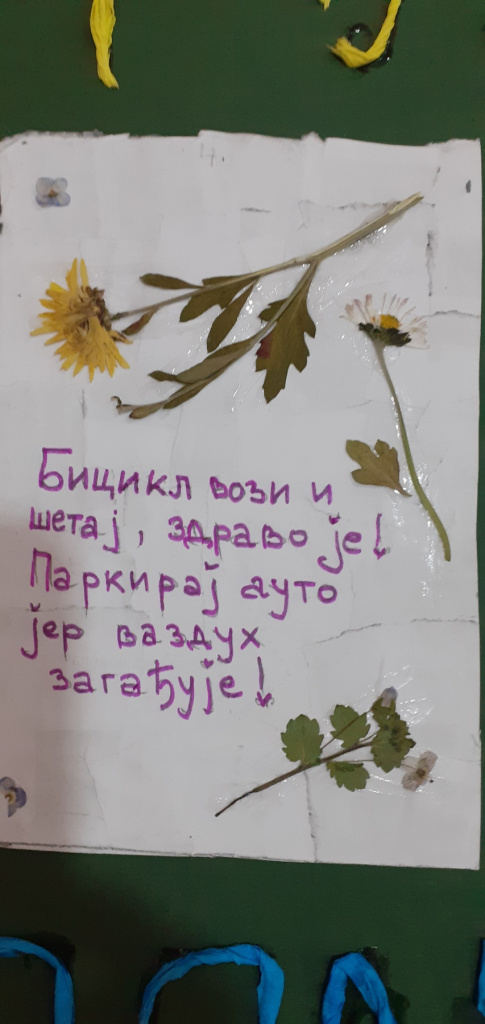 Бицикл вози и
шетај, здраво је!
Паркирај ауто
јер ваздух
загађује!